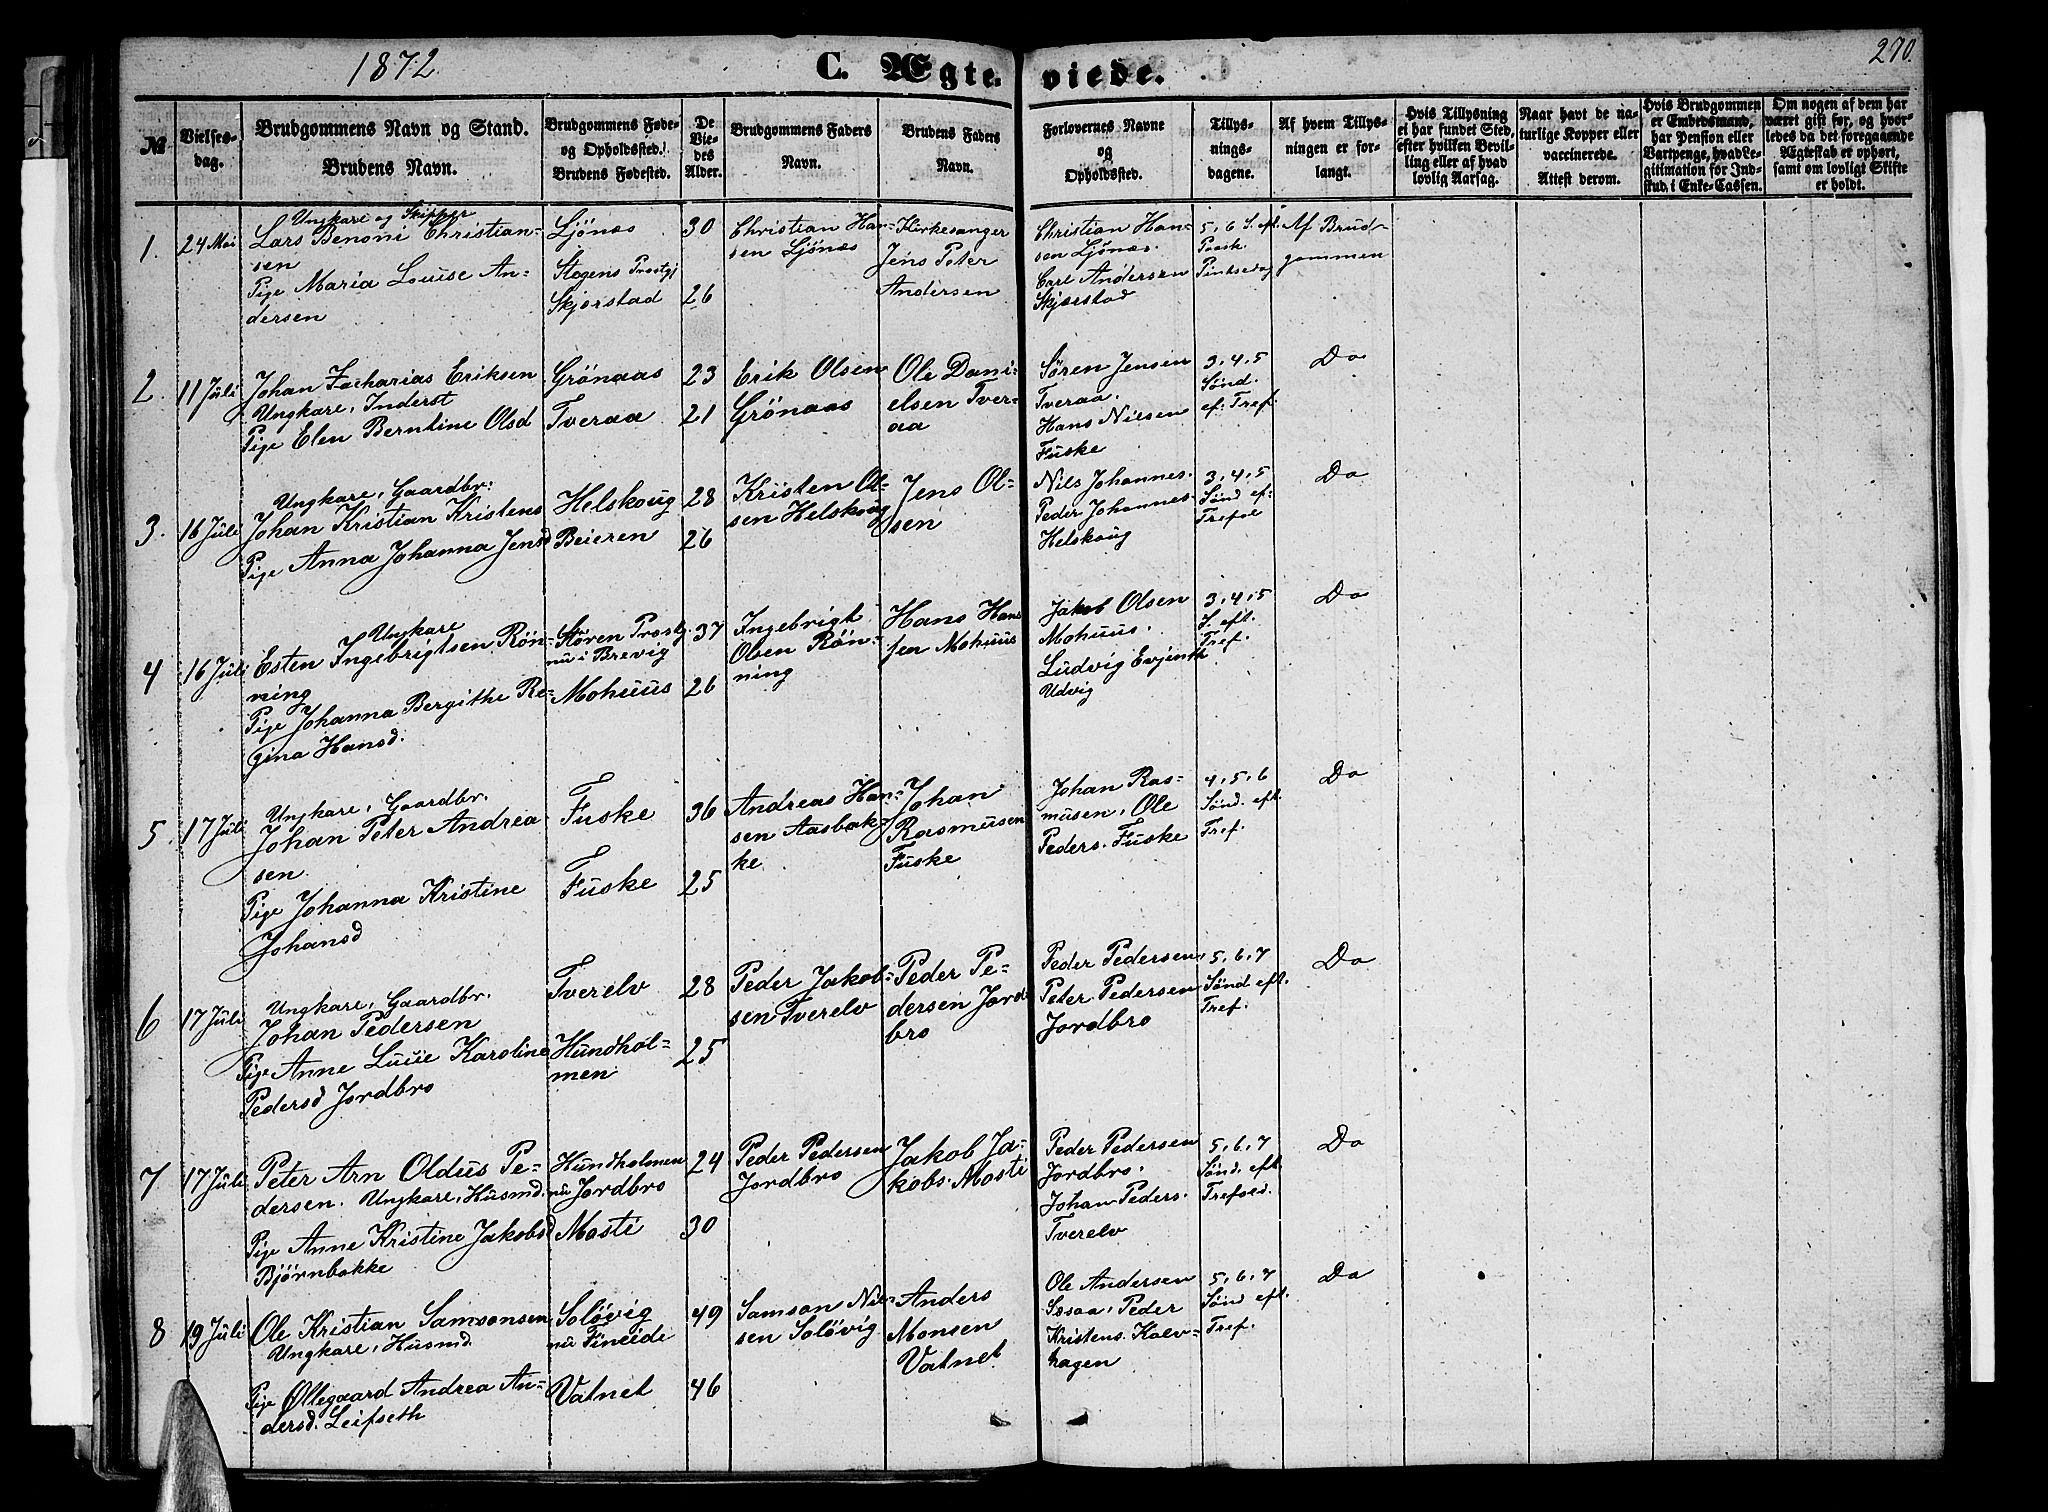 1872
C. Ægte.
viede.
270.
№
Vielses-
dag.
Brudgommens Navn og Stand.
Brudens Navn.
Brudgommens Føde-
og Opholdssted.
Brudens Fødested.
De
Vie-
des
Alder.
Brudgommens Faders
Navn.
Brudens Faders
Navn.
Forlovernes Navne
og
Opholdssted.
Tillys-
nings-
dagene.
Af hvem Tillys-
ningen er for-
langt.
Hvis Tillysning
ei har fundet Sted,
efter hvilken Bevil-
ling eller af hvad
lovlig Aarsag.
Naar havt de na-
turlige Kopper eller
vaccinerede.
Attest derom.
Hvis Brudgommen
er Embedsmand,
har Pension eller
Vartpenge, hvad Le-
gitimation for Ind-
skud i Enke-Cassen.
Om nogen af dem har
været gift før, og hvor-
ledes da det foregaaende
Ægteskab er ophørt,
samt om lovligt Skifte
er holdt.
1.
24 Mai
Ungkare og Skipper
Lars Benoni Christian-
sen
Pige Maria Louise An-
dersen
Ljönes
Stegens Prestgj
Skjerstad
30
26
Christian Han-
sen Ljönes
Kirkesanger
Jens Peter
Andersen
Christian Han-
sen Ljönes.
Carl Andersen
Skjerstad
5, 6 S. eft.
Paask.
Pintsedag
Af Brud-
gommen
2.
11 Juli
Johan Zacharias Eriksen
Ungkare, Inderst
Pige Elen Berntine Olsd
Grönaas
Tveraa
23
21
Erik Olsen
Grönaas
Ole Dani-
elsen Tver-
aa
Søren Jensen
Tveraa.
Hans Nilsen
Fuske
3, 4, 5
Sønd.
ef. Tref.
Do
3.
16 Juli
Ungkare, Gaardbr.
Johan Kristian Kristens
Pige Anna Johanna Jensd
Helskoug
Beieren
28
26
Kristen Ol-
sen Helskoug
Jens Ol-
sen
Nils Johannes.
Peder Johannes.
Helskoug
3, 4, 5
Sønd ef.
Trefol
Do
4
16 Juli
Ungkare
Esten Ingebrigtsen Rön-
ning
Pige Johanna Bergithe Re-
gina Hansd.
Støren Prestg.
nu i Brevig
Mohuus
37
26
Ingebrigt
Olsen Rön-
ning
Hans Han
sen Mohuus
Jakob Olsen
Mohuus.
Ludvig Evjenth
Udvig
3, 4, 5
S. eft.
Tref.
Do
5.
17 Juli
Ungkare, Gaardbr.
Johan Peter Andrea
sen.
Pige Johanna Kristine
Johansd
Fuske
Fuske
36
25
Andreas Han-
sen Aasbak-
ke
Johan
Rasmusen
Fuske
Johan Ras-
musen, Ole
Peders. Fuske
4, 5, 6
Sønd. eft.
Tref.
Do
6
17 Juli
Ungkare, Gaardbr.
Johan Pedersen
Pige Anne Luuie Karoline
Pedersd Jordbro
Tverelv
Hundhol-
men
28
25
Peder Jakob-
sen Tverelv
Peder Pe-
dersen Jord
bro
Peder Pedersen,
Peter Pedersen
Jordbro
5, 6, 7
Sønd eft.
Tref.
Do
7
17 Juli
Peter Arn Oldus Pe-
dersen. Ungkare, Husmd.
Pige Anne Kristine Jakobsd
Bjørnbakke
Hundholmen
nu Jordbro
Mosti
24
30
Peder Pedersen
Jordbro
Jakob Ja-
kobs. Mosti
Peder Pedersen
Jordbro.
Johan Peders.
Tverelv
5, 6, 7
Sønd. eft
Trefoed.
Do
8
19 Juli
Ole Kristian Samsonsen
Ungkare, Husmd.
Pige Øllegaard Andrea An-
dersd. Leifseth
Solövig
nu Fineide
Vatnet
49
46
Samson Nil-
sen Solövig
Anders
Monsen
Vatnet
Ole Andersen
Peder
Kristens. Kalv-
hagen
5, 6, 7
Sønd eft.
Tref.
Do